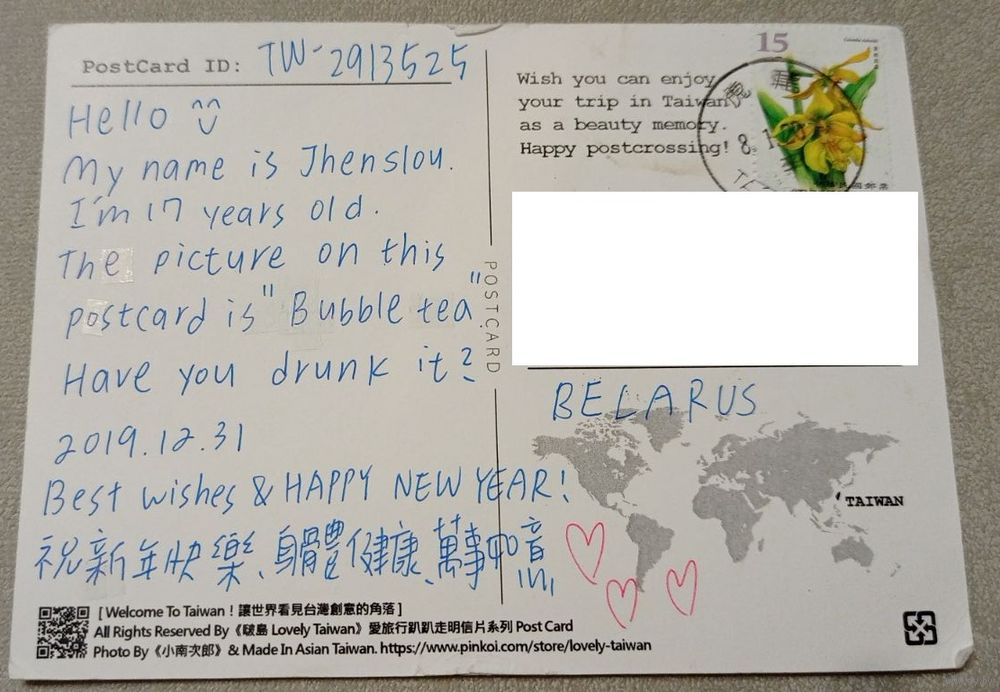 PostCard ID: TW-2913525
Hello
My name is Jhenslou.
I'm 17 years old.
The picture on this
postcard is "Bubble tea"
Have you drunk it?
2019.12.31
Best wishes & HAPPY NEW YEAR!
祝新年快樂、身體健康、萬事如意
[ Welcome To Taiwan！讓世界看見台灣創意的角落 ]
All Rights Reserved By《啵島 Lovely Taiwan》愛旅行趴趴走明信片系列 Post Card
Photo By《小南次郎》& Made In Asian Taiwan. https://www.pinkoi.com/store/lovely-taiwan
POSTCARD
15
Wish you can enjoy
your trip in Taiwan
as a beauty memory.
Happy postcrossing!
BELARUS
TAIWAN